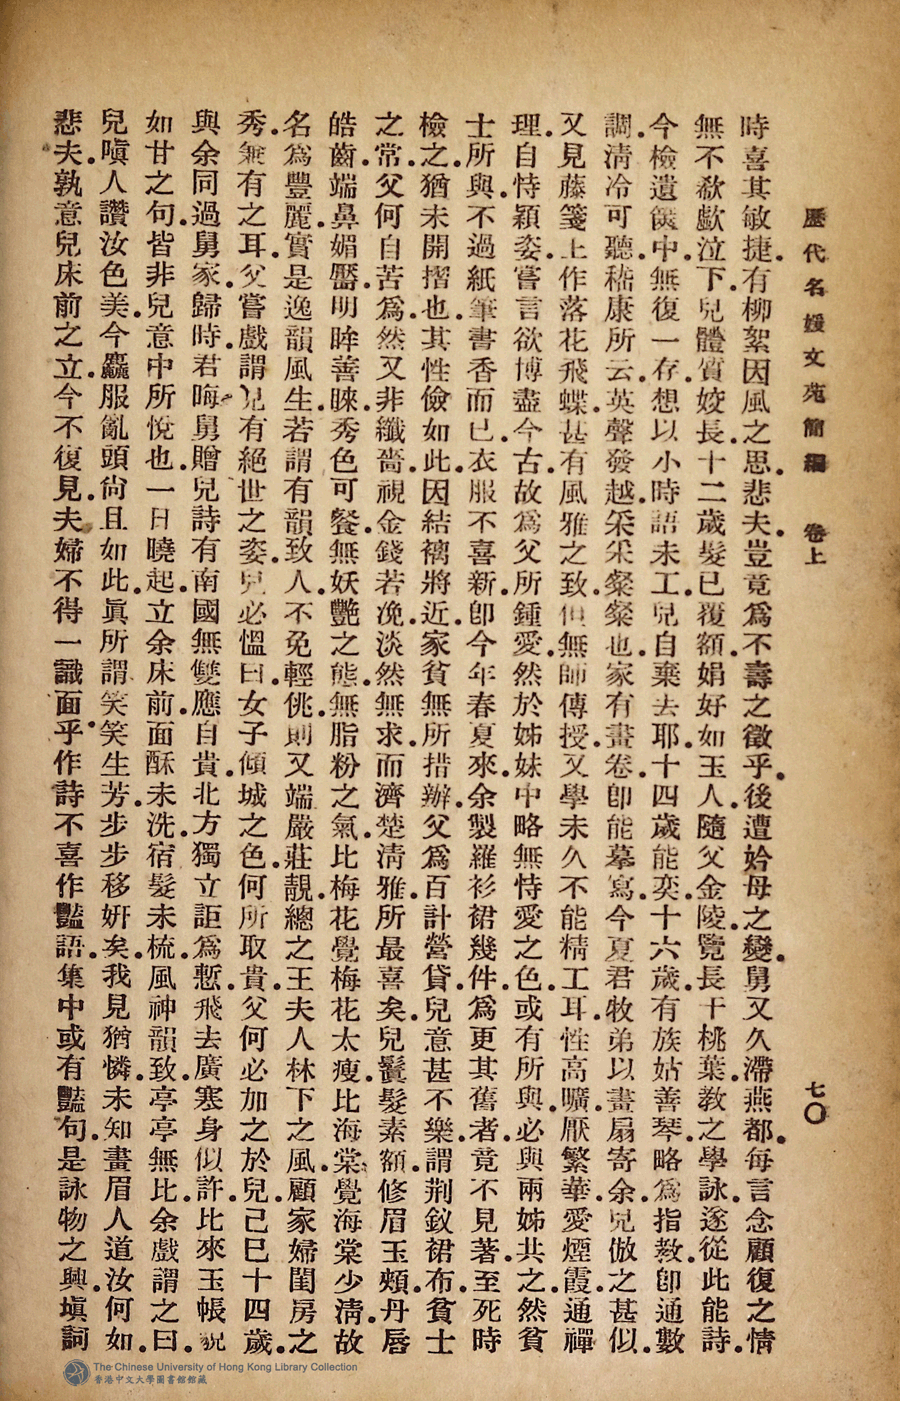 歷代名媛文苑簡編　卷上　七〇
時喜其敏捷．有柳絮因風之思．悲夫．豈竟爲不壽之徵乎．後遭妗母之變．舅又久滯燕都．每言念顧復之情
無不欷歔泣下．兒體質姣長．十二歲髮已覆額．娟好如玉人．隨父金陵．覽長干桃葉．教之學詠．遂從此能詩．
今檢遺篋中．無復一存．想以小時語未工．兒自棄去耶．十四歲能奕．十六歲．有族姑善琴．略爲指教．卽通數
調．清冷可聽．嵇康所云．英聲發越．采采粲粲也．家有畫卷．卽能摹寫．今夏君牧弟以畫扇寄余．兒倣之甚似．
又見藤箋上作落花飛蝶．甚有風雅之致．但無師傳授．又學未久．不能精工耳．性高曠．厭繁華．愛煙霞．通禪
理．自恃穎姿．嘗言欲博盡今古．故爲父所鍾愛．然於姊妹中略無恃愛之色．或有所與．必與兩姊共之．然貧
士所與．不過紙筆書香而已．衣服不喜新．卽今年春夏來．余製羅衫裙幾件．爲更其舊者．竟不見著．至死時
檢之．猶未開摺也．其性儉如此．因結褵將近．家貧無所措辦．父爲百計營貸．兒意甚不樂．謂荆釵裙布．貧士
之常．父何自苦爲．然又非纖嗇．視金錢若浼．淡然無求．而濟楚清雅．所最喜矣．兒鬢髮素額．修眉玉頰．丹唇
皓齒．端鼻媚靨．明眸善睞．秀色可餐．無妖艷之態．無脂粉之氣．比梅花覺梅花太瘦．比海棠．覺海棠少清．故
名爲豐麗．實是逸韻風生．若謂有韻致人．不免輕佻．則又端嚴莊靚．總之王夫人林下之風．顧家婦閨房之
秀．兼有之耳．父嘗戲謂兒有絕世之姿．兒必慍曰．女子傾城之色．何所取貴．父何必加之於兒．己巳十四歲．
與余同過舅家．歸時．君晦舅贈兒詩．有南國無雙應自貴．北方獨立詎爲慙．飛去廣寒身似許．比來玉帳貌
如甘之句．皆非兒意中所悅也．一日曉起．立余床前．面酥未洗．宿髮未梳．風神韻致．亭亭無比．余戲謂之曰．
兒嗔人讚汝色美．今麤服亂頭．尙且如此．眞所謂笑笑生芳．步步移姸矣．我見猶憐．未知畫眉人道汝何如．
悲夫．孰意兒床前之立．今不復見．夫婦不得一識面乎．作詩不喜作豔語．集中或有豔句．是詠物之興．塡詞
The Chinese University of Hong Kong Library Collection
香港中文大學圖書館館藏